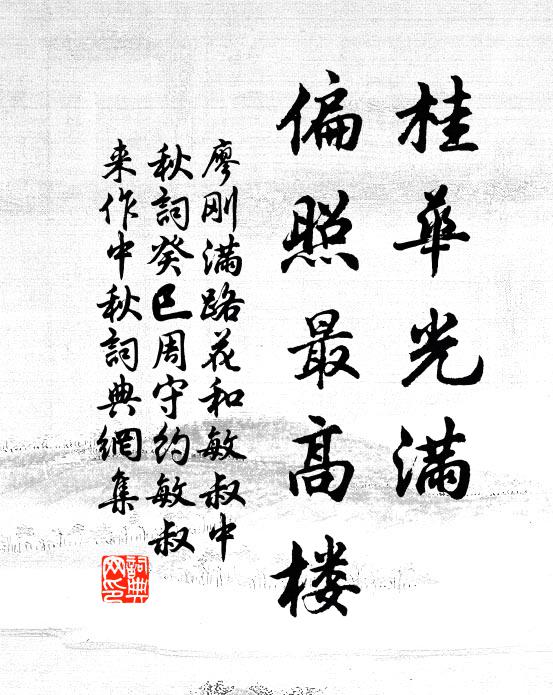 桂華光滿
偏照最高楼
廖刚滿路花和敏叔中
秋詞癸巳周守約敏叔
来作中秋詞典網集
詞典
网印